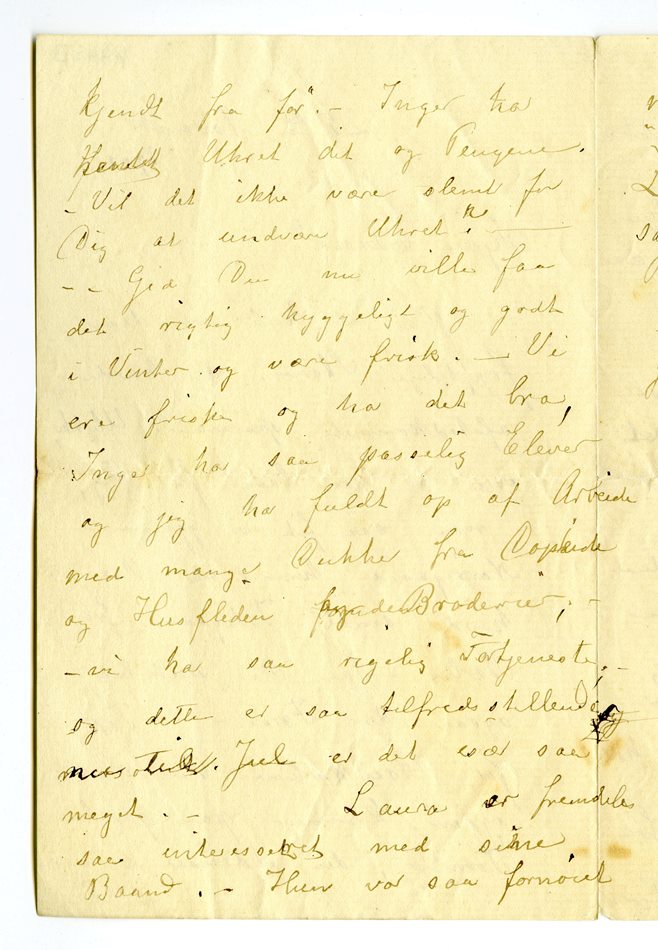 kjendt fra før". – Inger ha
hentet Uhret dit og Pengene.
– Vil det ikke være slemt for
Dig at undvære Uhret? –
– – Gid Du nu ville faa
det rigtig hyggeligt og godt
i Vinter og være frisk. – Vi
ere friske og ha det bra,
Inger ha saa passelig Elever
og jeg ha fuldt op af Arbeide
med mange Dukker fra
og Husfliden Broderier, –
– vi ha saa rigelig Fortjeneste, –
og dette er saa tilfredsstillende,
Jul er det især saa
meget. – Laura er fremdeles
saa interesseret med sine
Baand. – Hun var saa fornøiet